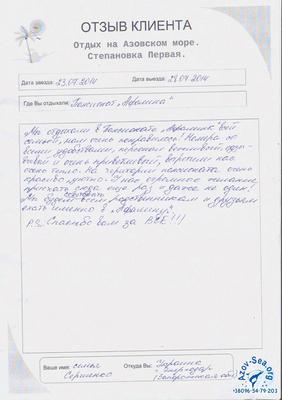 ОТЗЫВ КЛИЕНТА
Отдых на Азовском море.
Степановка Первая.
Дата заезда: 23.07.2014 Дата выезда: 29.07.2014
Где Вы отдыхали: Пансионат "Афалина"
Мы отдыхали в Пансионате "Афалина" всей
семьей, нам очень понравилось! Номера со
всеми удобствами, персонал вежливый,
и очень приветливый, встретили нас
очень тепло. На территории пансионата очень
красиво, уютно. У нас огромное желание
приехать сюда ещё раз и даже не один!
Мы будем всем родственникам и друзьям
советовать
ехать именно в "Афалину".
P.S. Спасибо Вам за ВСЁ!!!
Ваше имя: семья
Откуда Вы: Украина
Azov-Sea.org
+38096-54-79-203